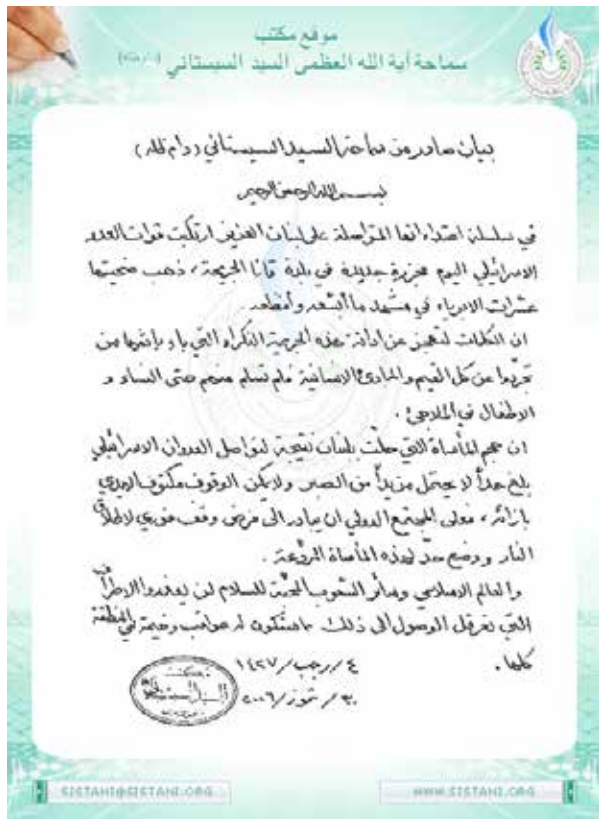 موقع مكتب
سماحة آية الله العظمى السيد السيستاني (دام ظله)
بيان صادر من سماحة السيد السيستاني (دام ظله)
بسم الله الرحمن الرحيم
في سلسلة اعتداءاتها المتواصلة على لبنان العزيز ارتكبت قوات العدو
الاسرائيلي اليوم مجزرة جديدة في بلدة قانا الجريحة، ذهب ضحيتها
عشرات الابرياء في مشهد ما أبشعه وأفظعه
ان الكلمات لتعجز عن ادانة هذه الجريمة النكراء التي باء بإثمها من
تجردوا عن كل القيم والمبادئ الانسانية فلم تسلم منهم حتى النساء و
الاطفال في الملاجئ.
ان حجم المأساة التي حلّت بلبنان نتيجة لتواصل العدوان الاسرائيلي
بلغ حداً لا يحتمل مزيداً من الصبر ولا يمكن الوقوف مكتوف الايدي
بازائه، فعلى المجتمع الدولي ان يبادر الى فرض وقف فوري لاطلاق
النار ووضع حدّ لهذه المأساة المروّعة.
والعالم الاسلامي وسائر الشعوب المحبّة للسلام لن يعذروا الاطراف
التي تعرقل الوصول الى ذلك وستكون له عواقب وخيمة على المنطقة
كلها.
٤/رجب/١٤٢٧
٣٠/تموز/٢٠٠٦
مكتب
السيد السيستاني
SISTANI@SISTANI.ORG
WWW.SISTANI.ORG